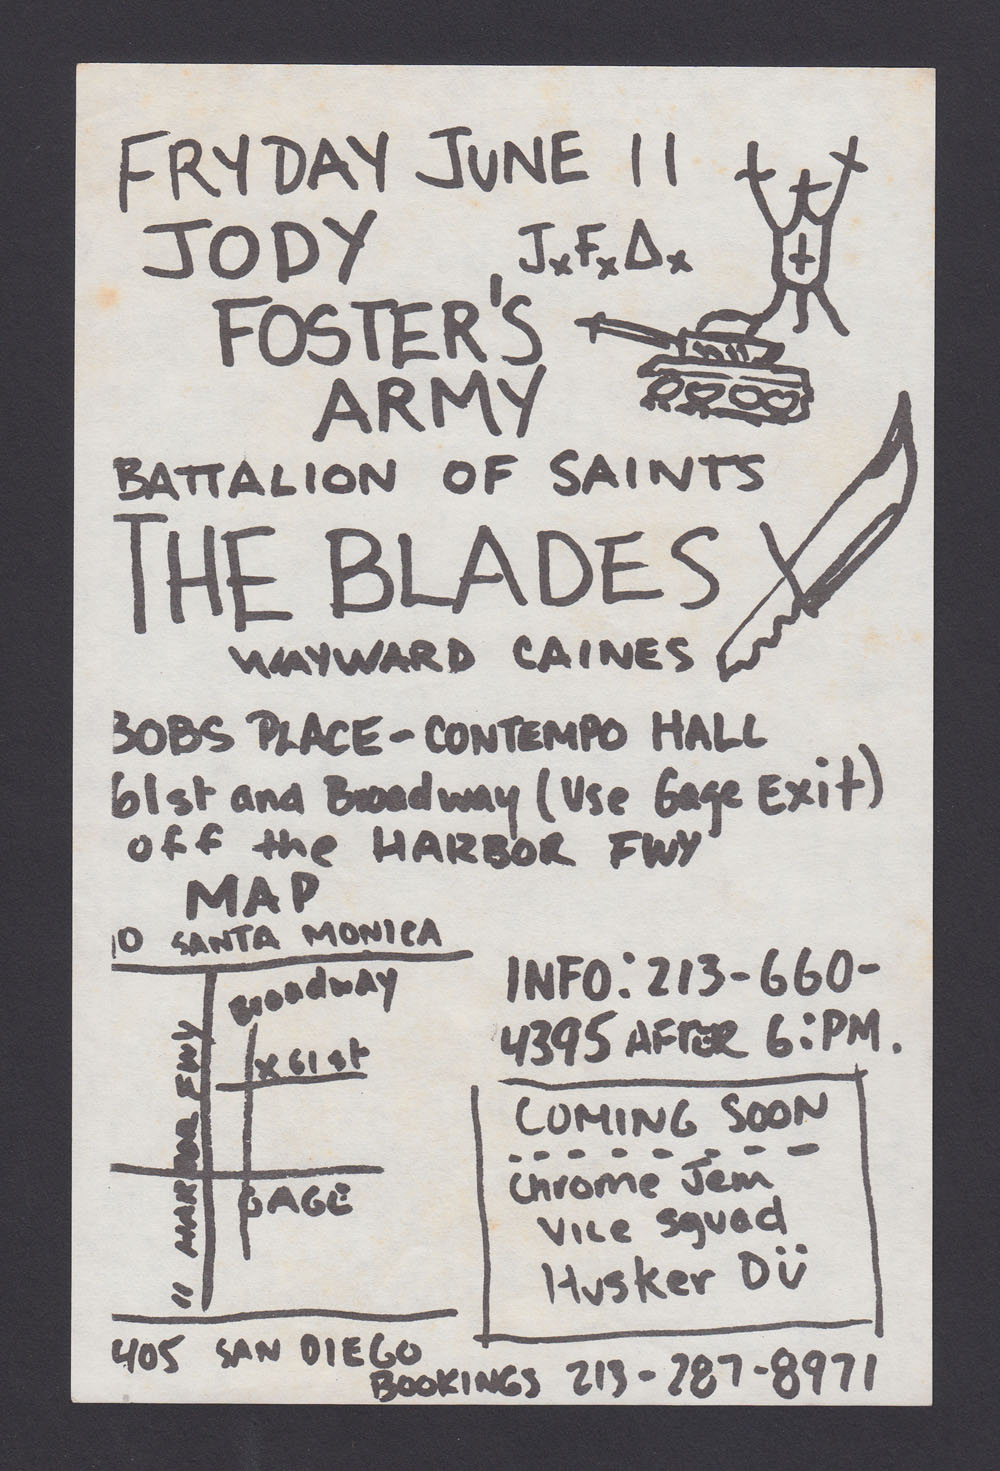 FRYDAY JUNE 11
JODY JxFxΔx
FOSTER'S
ARMY
BATTALION OF SAINTS
THE BLADES
WAYWARD CAINES
BOBS PLACE - CONTEMPO HALL
61st and Broadway (Use Gage Exit)
off the HARBOR FWY
MAP
10 SANTA MONICA
Broadway
X 61st
11 HARBOR FWY
GAGE
405 SAN DIEGO
INFO: 213-660-
4395 AFTER 6:PM.
COMING SOON
Chrome Jem
Vice Squad
Husker Dü
BOOKINGS 213-287-8971